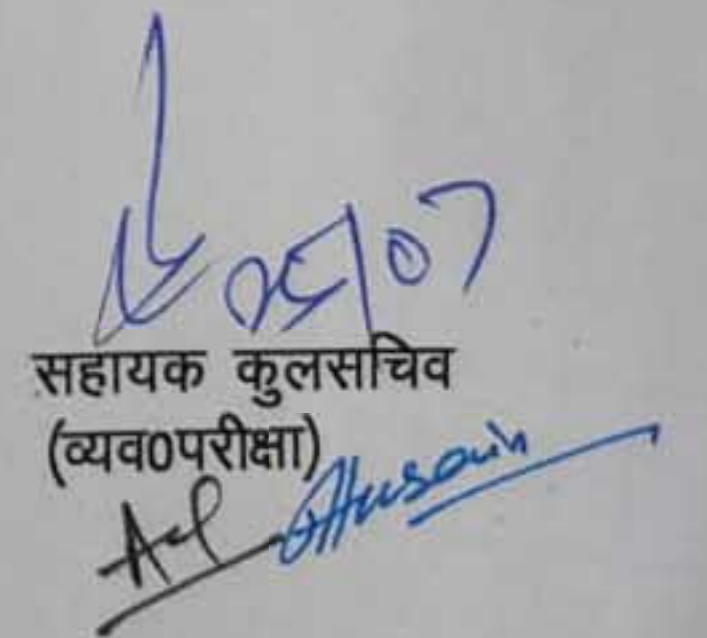 05/07
सहायक कुलसचिव
(व्यव0परीक्षा)
Husain